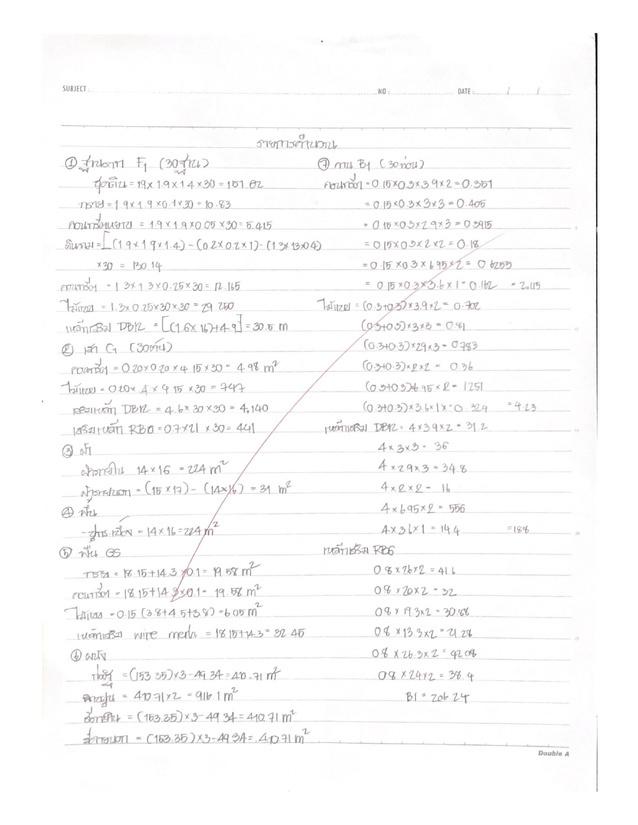 SUBJECT : NO : DATE : / /
รายการคำนวณ
① ฐานราก F1 (30ฐาน)
ขุดดิน = 1.9 × 1.9 × 1.4 × 30 = 151.62
ทราย = 1.9 × 1.9 × 0.1 × 30 = 10.83
คอนกรีตหยาบ = 1.9 × 1.9 × 0.05 × 30 = 5.415
ดินถม = [(1.9 × 1.9 × 1.4) - (0.2 × 0.2 × 1) - (1.3 × 1.3 × 0.4)
× 30 = 130.14
คอนกรีต = 1.3 × 1.3 × 0.25 × 30 = 12.165
ไม้แบบ = 1.3 × 0.25 × 30 × 30 = 29.250
เหล็กเสริม DB12 = [(1.6 × 16) + 4.9] = 30.5 m
② เสา C1 (30ต้น)
คอนกรีต = 0.20 × 0.20 × 4.15 × 30 = 4.98 m²
ไม้แบบ = 0.20 × 4 × 4.15 × 30 = 747
DB12 = 4.6 × 30 × 30 = 4,140
เสริมเหล็ก RB6 = 0.7 × 21 × 30 = 441
③ ฝ้า
ฝ้าภายใน 14 × 16 = 224 m²
ฝ้าภายนอก = (15 × 17) - (14 × 16) = 31 m²
④ พื้น
14 × 16 = 224 m²
⑤ พื้น GS
ทราย = 18.15 + 14.3 × 0.1 = 19.58 m²
คอนกรีต = 18.15 + 14.3 × 0.1 = 19.58 m²
ไม้แบบ = 0.15 (3.8 + 4.5 + 3.8) = 6.05 m²
เหล็กเสริม wire mesh = 18.15 + 14.3 = 32.45
⑥ ผนัง
ก่ออิฐ = (153.35) × 3 - 49.34 = 410.71 m²
ฉาบปูน = 410.71 × 2 = 9161 m²
= (153.35) × 3 - 49.34 = 410.71 m²
= (153.35) × 3 - 49.34 = 410.71 m²
⑦ คาน B1 (30ท่อน)
คอนกรีต = 0.15 × 0.3 × 3.9 × 2 = 0.351
= 0.15 × 0.3 × 3 × 3 = 0.405
= 0.15 × 0.3 × 2.9 × 3 = 0.3915
= 0.15 × 0.3 × 2 × 2 = 0.18
= 0.15 × 0.3 × 6.95 × 2 = 0.6255
= 0.15 × 0.3 × 3.6 × 1 = 0.162 = 2.115
ไม้แบบ = (0.3+0.3) × 3.9 × 2 = 0.702
(0.3+0.3) × 3 × 3 = 0.81
(0.3+0.3) × 2.9 × 3 = 0.783
(0.3+0.3) × 2 × 2 = 0.36
(0.3+0.3) 6.95 × 2 = 1.251
(0.3+0.3) × 3.6 × 1 = 0.324 = 4.23
เหล็กเสริม DB12 = 4 × 3.9 × 2 = 31.2
4 × 3 × 3 = 36
4 × 2.9 × 3 = 34.8
4 × 2 × 2 = 16
4 × 6.95 × 2 = 55.6
4 × 3.6 × 1 = 14.4 = 188
เหล็กเสริม RB6
0.8 × 26 × 2 = 41.6
0.8 × 20 × 2 = 32
0.8 × 19.3 × 2 = 30.88
0.8 × 13.3 × 2 = 21.28
0.8 × 26.3 × 2 = 42.08
0.8 × 24 × 2 = 38.4
B1 = 206.24
Double A